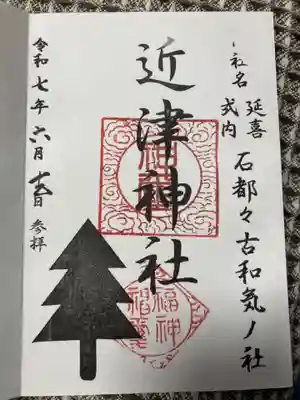 延喜
式内
社名
石都々古和気ノ社
近津神社
令和七年六月十五日 参拝
福神